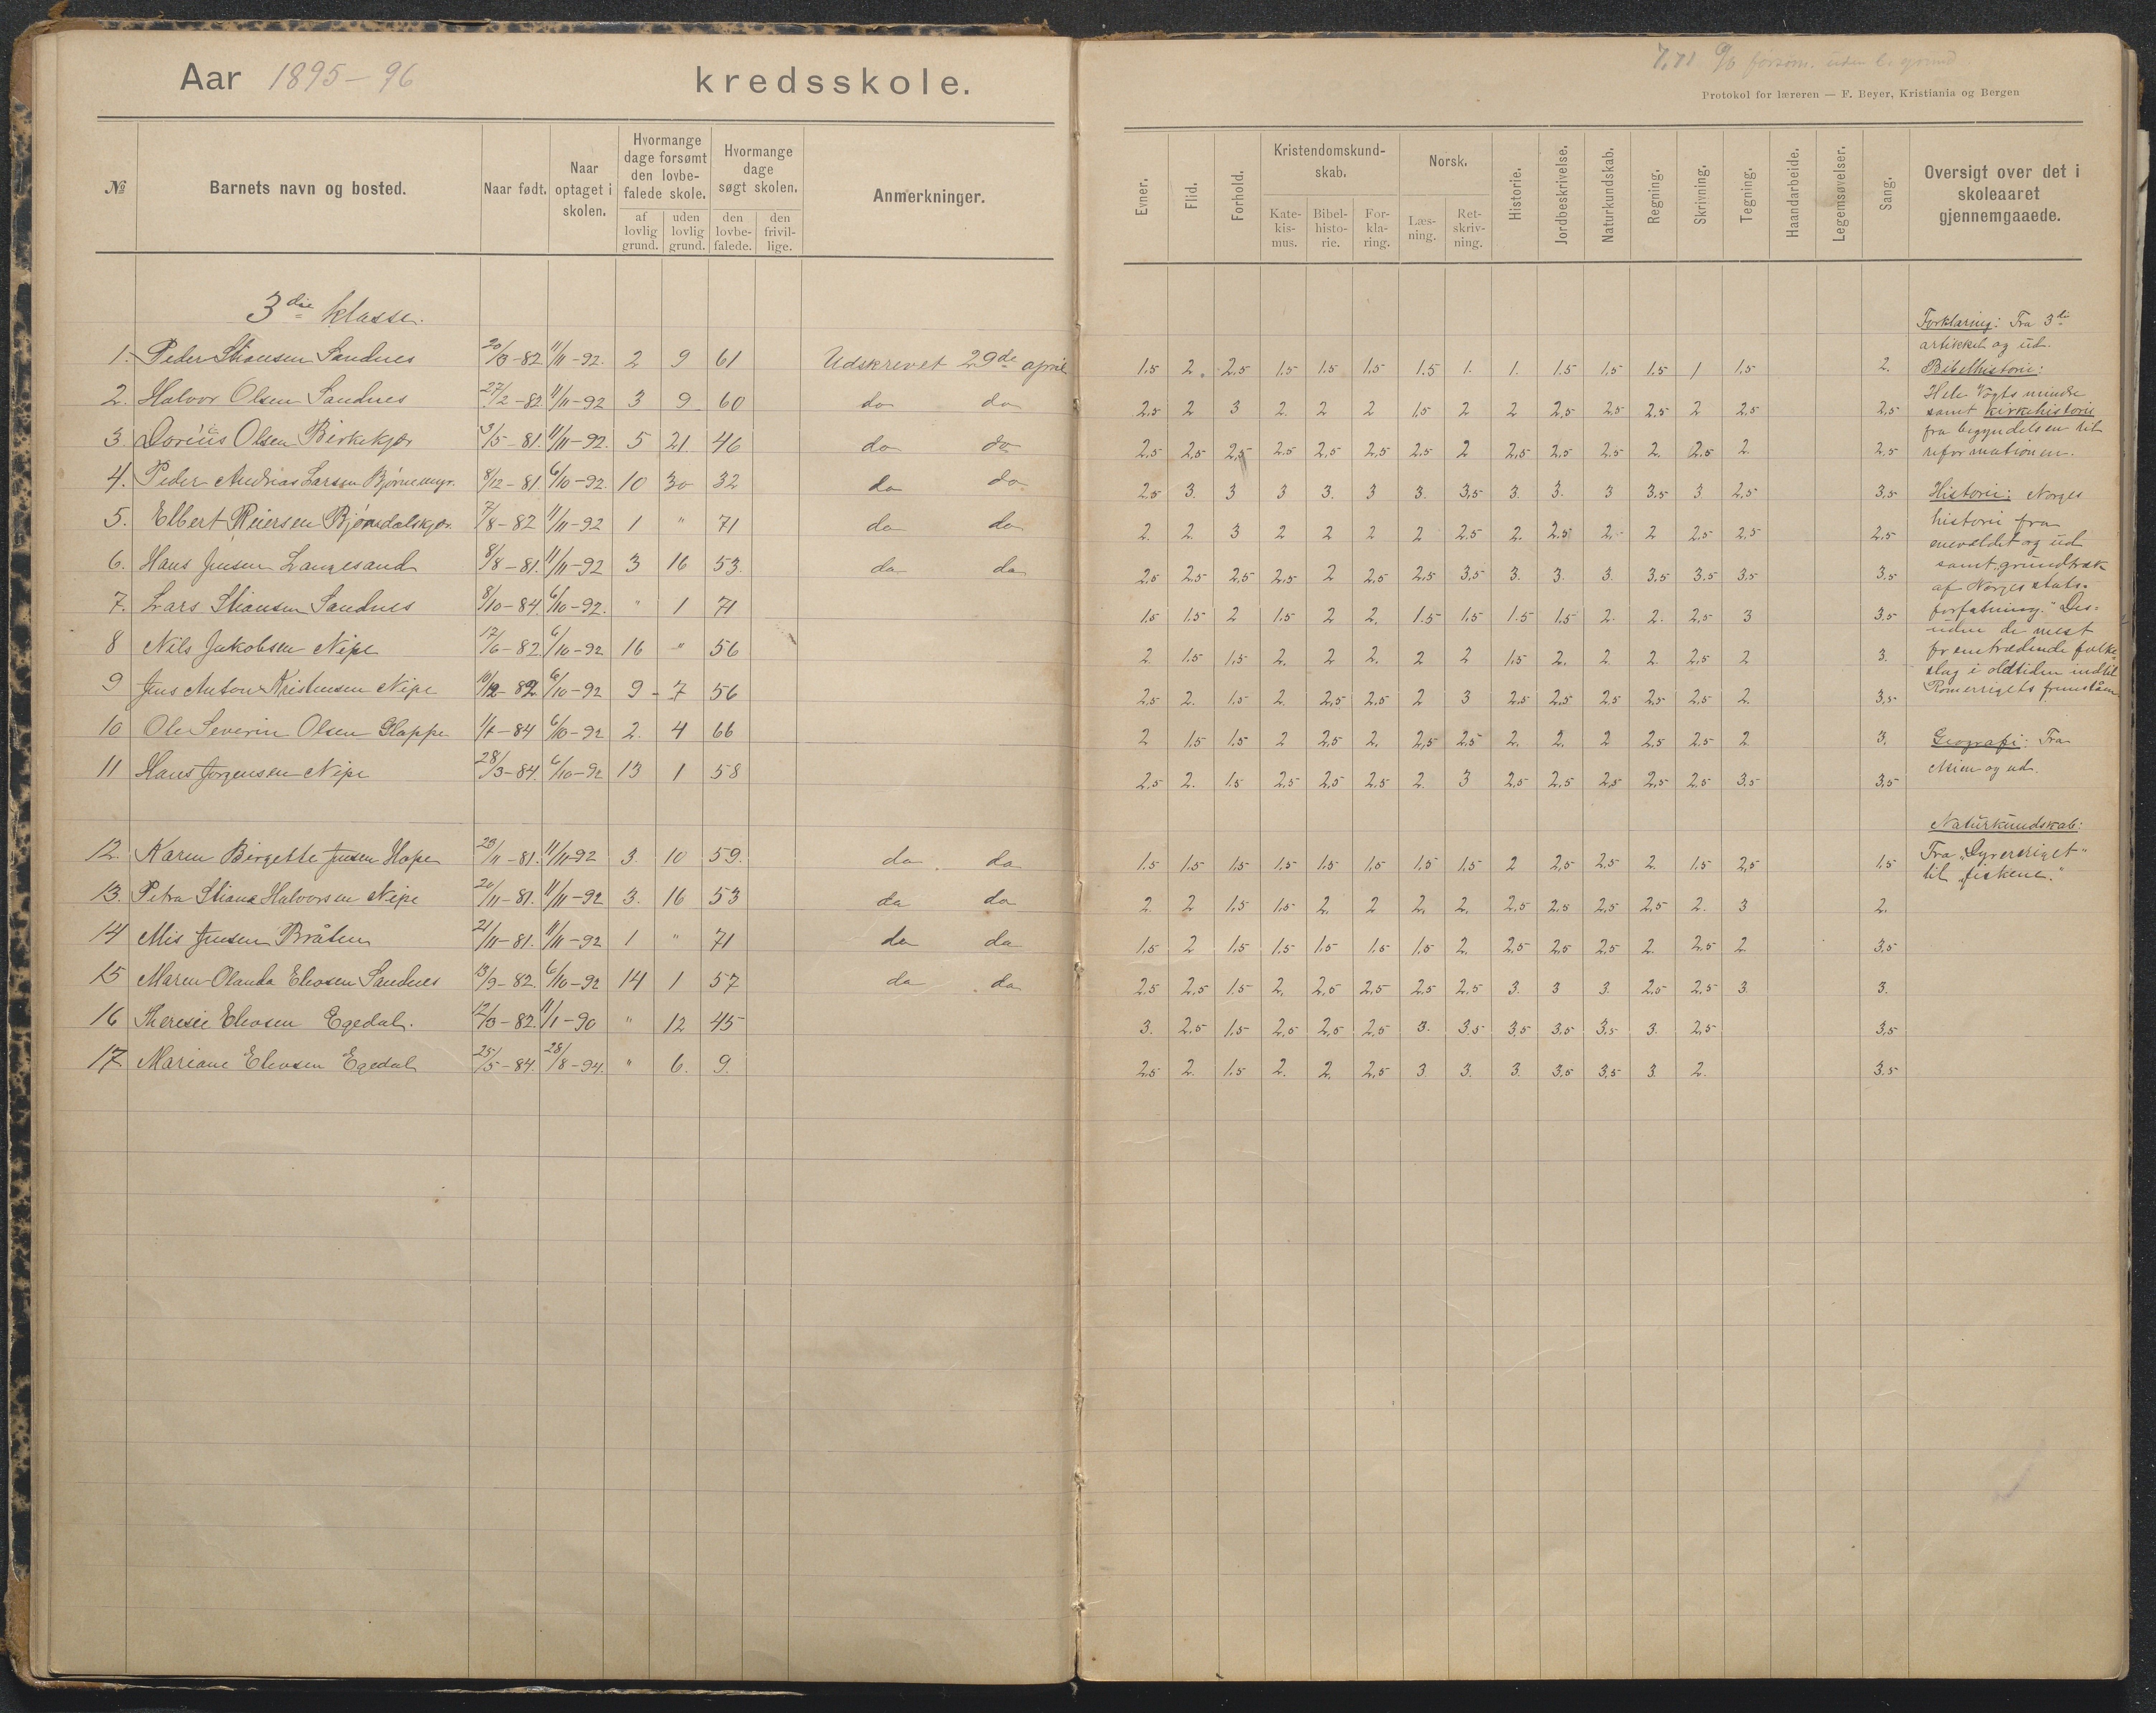 Aar 1895-96 kredsskole.
№ Barnets navn og bosted. Naar født. Naar optaget i skolen. Hvormange dage forsømt den lovbefalede skole. af lovlig grund. uden lovlig grund. Hvormange dage søgt skolen. den lovbefalede. den frivillige. Anmerkninger.
3die klasse.
1. Peder Stiansen Sandnes 20/3-82 11/11-92. 2 9 61 Udskrevet 29de april
2. Halvor Olsen Sandnes 27/2-82. 11/11-92 3 9 60 do do
3. Dorius Olsen Birkekjær 3/5-81. 11/11-92. 5 21. 46 do do
4. Peder Andreas Larsen Bjørnemyr. 8/12-81. 6/10-92. 10 30 32 do do
5. Elbert Reiersen Bjørndalskjær. 7/8-82 11/11-92 1 " 71 do do
6. Hans Jensen Langesand 8/8-81. 11/11-92 3 16 53. do do
7. Lars Stiansen Sandnes 8/10-84 6/10-92. " 1 71
8 Nils Jakobsen Nipe 17/6-82. 6/10-92 16 " 56
9 Jens Anton Kristensen Nipe 10/12-82 6/10-92 9 - 7 56
10 Ole Severin Olsen Glappe 1/7-84 6/10-92 2. 4 66
11 Hans Jørgensen Nipe 28/3-84. 6/10-92 13 1 58
12. Karen Birgette Jensen Hope 29/11-81. 11/11-92 3. 10 59. do do
13. Petra Stiana Halvorsen Nipe 20/11-81. 11/11-92 3. 16 53 do do
14 Mis Jensen Bråten 21/11-81. 11/11-92 1 " 71 do do
15 Maren Olanda Elevsen Sandnes 13/9-82. 6/10-92 14 1 57 do do
16 Theresie Elevsen Egedal. 12/3-82. 11/1-90 " 12 45
17. Mariane Elevsen Egedal 25/5-84. 28/8-94. " 6. 9.
7,71 % forsøm. uden l. grund
Protokol for læreren — F. Beyer, Kristiania og Bergen
Evner. Flid. Forhold. Kristendomskundskab. Katekismus. Bibelhistorie. Forklaring. Norsk. Læsning. Retskrivning. Historie. Jordbeskrivelse. Naturkundskab. Regning. Skrivning. Tegning. Haandarbeide. Legemsøvelser. Sang. Oversigt over det i skoleaaret gjennemgaaede.
1.5 2. 2.5 1.5 1.5 1.5 1.5 1. 1. 1.5 1.5 1.5 1 1.5 2.
2,5 2 3 2. 2 2 1,5 2 2 2,5 2,5 2,5 2 2,5 2,5
2,5 2,5 2,5 2.5 2,5 2,5 2.5 2 2,5 2,5 2.5 2. 2,5 2. 2,5
2,5 3. 3 3 3. 3 3. 3,5 3. 3. 3 3.5 3 2,5 3,5
2. 2. 3 2 2 2 2 2.5 2. 2.5 2. 2 2,5 2,5 2.5
2,5 2,5 2,5 2,5 2 2,5 2,5 3,5 3. 3. 3. 3,5 3.5 3,5 3.5
1.5 1.5 2 1.5 2 2. 1.5 1,5 1.5 1.5 2. 2. 2,5 3 3.5
2. 1.5 1,5 2. 2 2. 2 2 1.5 2. 2. 2. 2,5 2 3.
2.5 2. 1.5 2. 2,5 2,5 2 3 2.5 2,5 2,5 2,5 2,5 2. 3,5
2 1.5 1.5 2 2,5 2. 2,5 2.5 2. 2. 2 2,5 2.5 2 3.
2,5 2. 1.5 2,5 2,5 2,5 2. 3 2,5 2,5 2,5 2,5 2,5 3.5 3,5
1.5 1,5 1,5 1,5 1,5 1,5 1,5 1,5 2 2,5 2,5 2. 1.5 2,5 1,5
2. 2 1.5 1.5 2. 2 2. 2. 2,5 2,5 2,5 2,5 2. 3 2.
1.5 2 1.5 1.5 1,5 1,5 1,5 2. 2,5 2,5 2,5 2. 2.5 2 3,5
2.5 2,5 1.5 2. 2,5 2,5 2,5 2,5 3. 3 3. 2.5 2,5 3. 3.
3. 2.5 1.5 2,5 2,5 2,5 3. 3.5 3,5 3,5 3,5 3. 2,5 3,5
2.5 2. 1.5 2. 2. 2,5 3 3. 3. 3,5 3,5 3. 2. 3.5
Forklaring: Fra 3die
artikkel og ud.
Bibelhistorie:
Hele Vogts mindre
samt kirkehistorie
fra begyndelsen til
reformationen.
Historie: Norges
historie fra
enevældet og ud
samt "grundtræk
af Norges stats=
forfatning." Des=
uden de mest
fremtrædende folke
slag i oldtiden indtil
Romerrigets
Geografi: Fra
Asien og ud.
Naturkundskab:
Fra "Dyreriget"
til "fiskene."